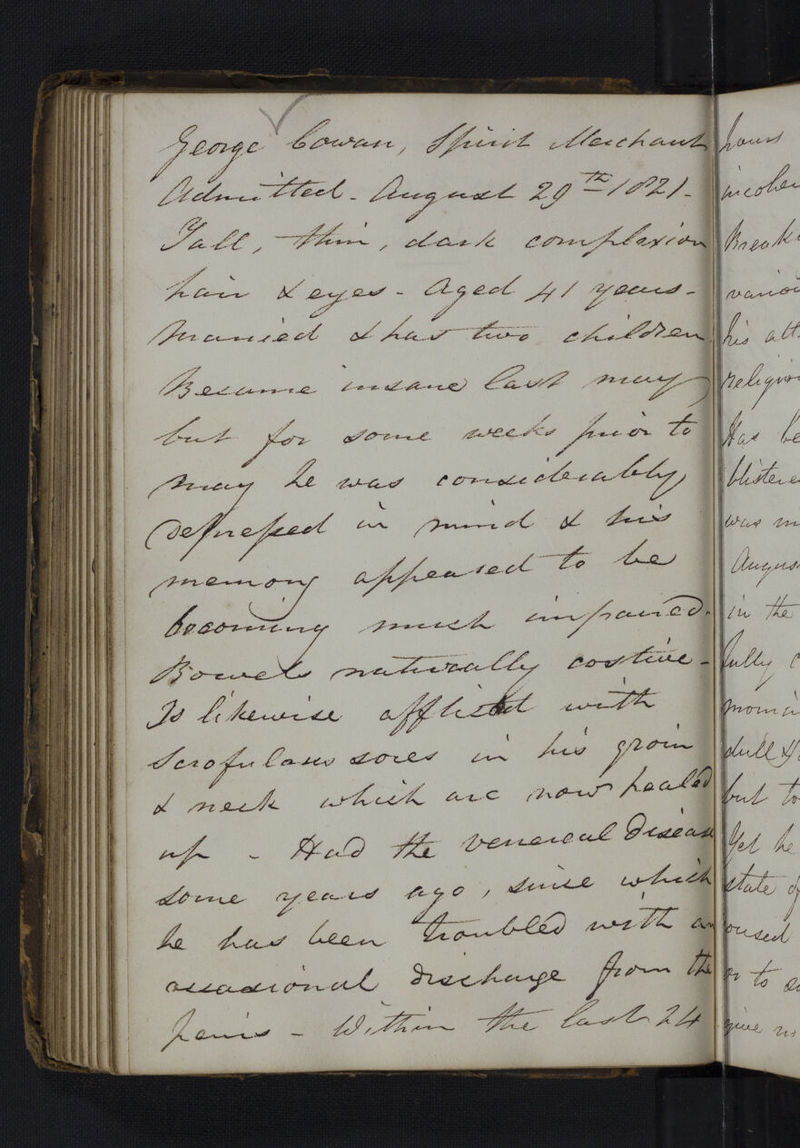 George Cowan, Spirit Merchant
Admitted - August 29th 1821 -
Tall, thin, dark complexion
hair & eyes - Aged 41 years -
Married & has two children
Became insane last may
but for some weeks prior to
may he was considerably
depressed in mind & his
memory appeared to be
becoming much impaired.
Bowels naturally costive -
Is likewise afflicted with
Scrofulous sores in his groin
& neck which are now healed
up - Had the venereal Disease
some years ago, since which
he has been troubled with an
occasional discharge from the
penis - Within the last 24
hours
incoher
Break
variou
his att
religiou
Has be
blistere
was m
Augus
in the
fully c
morni
dull &
but to
Yet he
state of
oused
or to s
give no